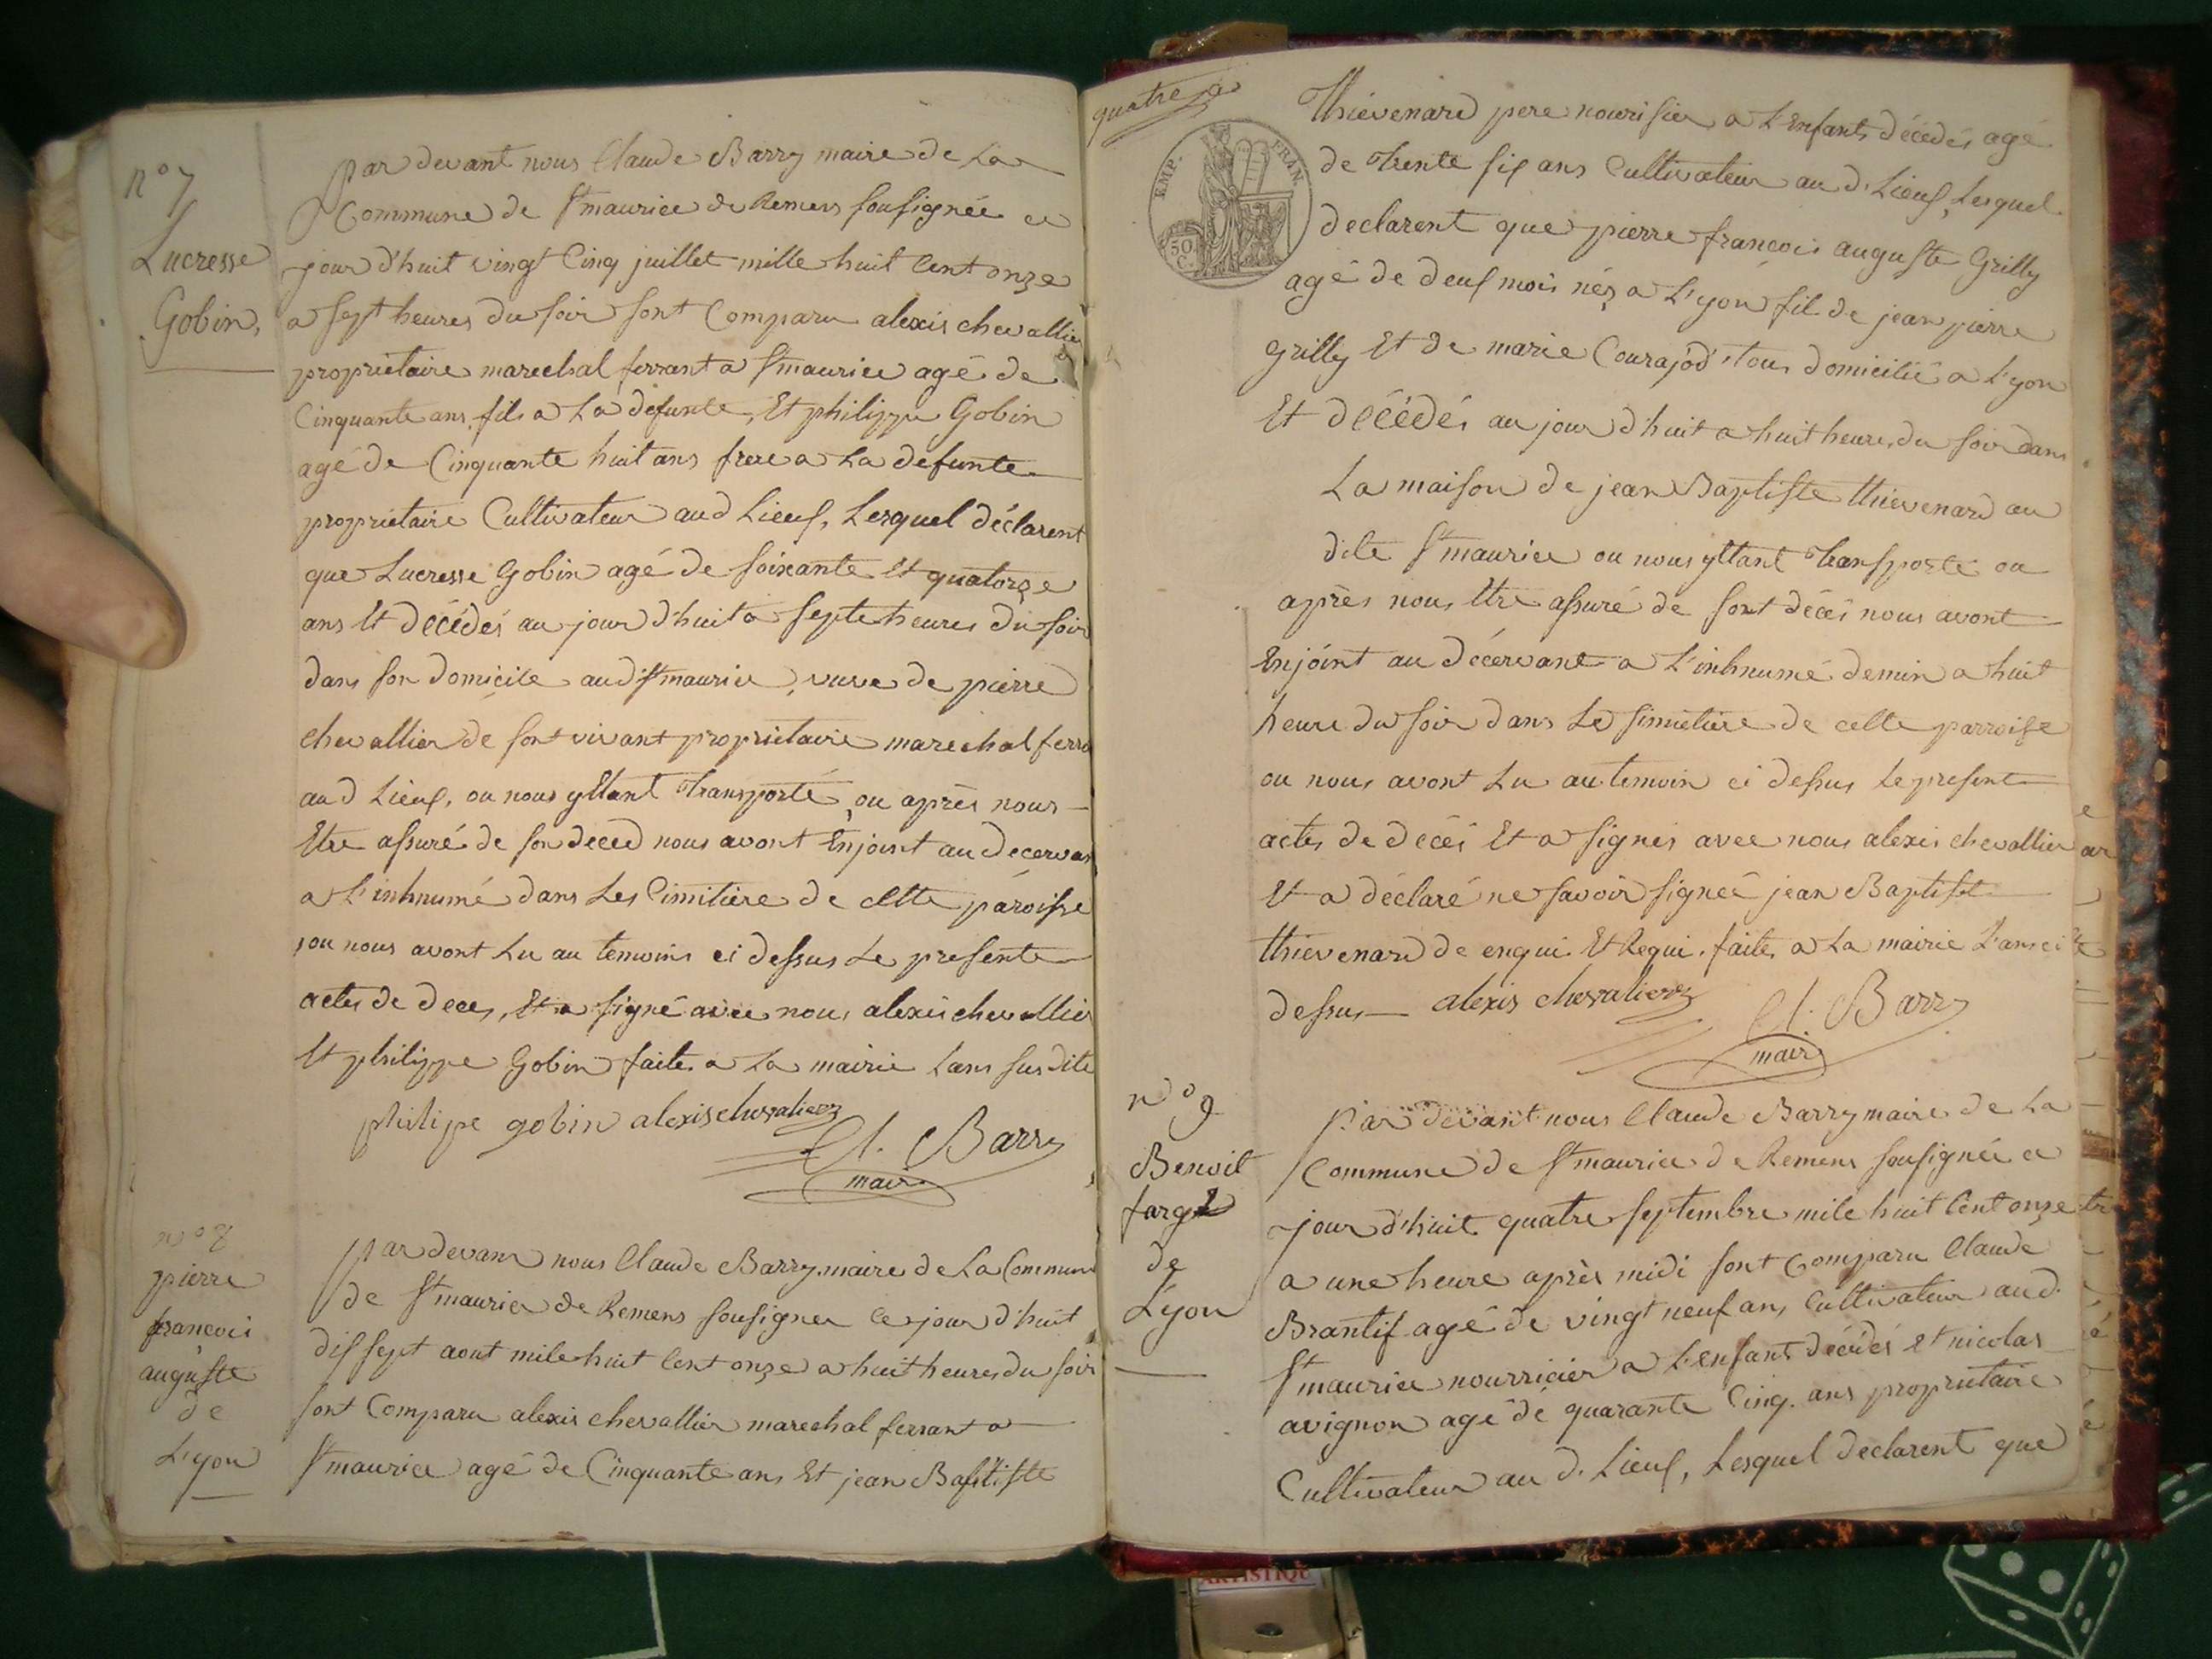 n° 7
Lucresse
Gobin,
par devant nous Claude Barry maire de La
Commune de St maurice de Remens sousignée ce
jour d'huit vingt Cinq juillet mille huit Cent onze
a sept heures du soir sont Comparu alexis chevallier
proprietaire marechal ferrant a St maurice agé de
Cinquante ans, fils a La defunte, Et philippe Gobin
agé de Cinquante huit ans frere a La defunte
proprietaire Cultivateur aud Lieux, Lesquel déclarent
que Lucresse Gobin agé de soixante Et quatorze
ans Et décédés au jour d'huit a septe heures du soir
dans son domicile aud St maurice, veuve de pierre
chevallier de sont vivant proprietaire marechal ferra
aud Lieux, ou nous y Etant Transporté, ou après nous
Etre assuré de son deced nous avont Enjoint au decervan
a L'inhnumé dans Les Cimitière de Cette paroisse
, ou nous avont Lu au temoins ci dessus Le presente
actes de deces, Et a signé avec nous alexis chevallier
Et philippe Gobin faite a La mairie Lans sus dite
philipe gobin alexis chevalier
Cl. Barry
mair
n° 8
pierre
francois
auguste
de
L'yon
par devant nous Claude Barry maire de La Commune
de St maurice de Remens sousigner ce jour d'huit
dix sept aout mile huit Cent onze a huit heures du soir
sont Comparu alexis chevallier marechal ferrant a
St maurice agé de Cinquante ans Et jean Baptiste
quatre
EMP. FRAN.
50 C.
Thievenard pere nourisier a L'Enfants décédés agé
de Trente six ans Cultivateur au d. Lieux, Lesquel
declarent que pierre francois auguste Grilly
agé de deux mois nés a L'yon fils de jean pierre
grilly Et de marie Courajod, tous domicilié a L'yon
Et décédés au jour d'huit a huit heures du soir dans
La maison de jean Baptiste thievenard au
dite St maurice ou nous y Etant Transporté ou
après nous Etre assuré de sont décés nous avont
Enjoint au décervant a L'inhnumé demin a huit
heure du soir dans Le simetiere de cette parroisse
ou nous avont Lu au temoin ci dessus Le present
actes de décés Et a signés avec nous alexis chevallier
Et a déclaré ne savoir signeé jean Baptiste
thievenard de enqui Et Requi. faite a La mairie L'ans ci
dessus alexis chevalier
Cl. Barry
mair
n° 9
Benoit
farge
de
L'yon
par devant nous Claude Barry maire de La
Commune de St maurice de Remens sousignée ce
jour d'huit quatre septembre mile huit Cent onze
a une heure après midi sont Comparu Claude
Brantif agé de vingt neuf ans Cultivateur aud.
St maurice nourricier a L'enfant décédés et nicolas
avignon agé de quarante Cinq. ans proprietaire
Cultivateur au d. Lieux, Lesquel declarent que
ARTISTIQU